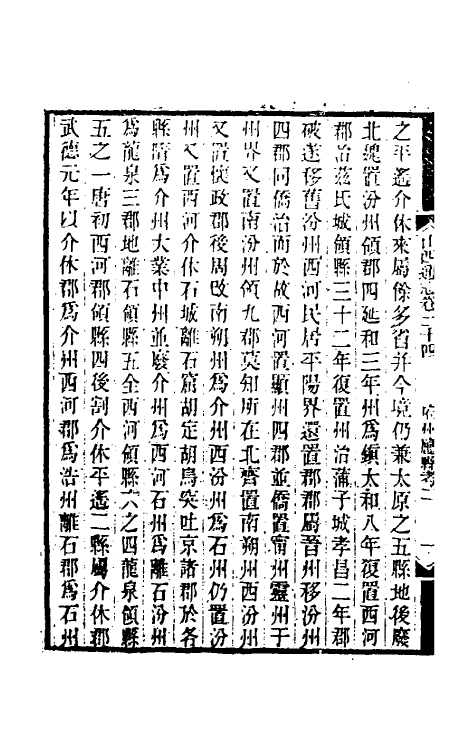 山西通志卷二十四　府州廳縣考二　一
之平遙介休來屬餘多省并今境仍兼太原之五縣地後廢
北魏置汾州領郡四延和三年州爲鎮太和八年復置西河
郡治茲氏城領縣三十二年復置州治蒲子城孝昌二年郡
破遂移舊汾州西河民居平陽界還置郡郡屬晉州移汾州
四郡同僑治而於故西河置顯州四郡並僑置甯州靈州于
州界又置南汾州領九郡莫知所在北齊置南朔州西汾州
又置懷政郡後周改南朔州爲介州西汾州爲石州仍置汾
州又置西河介休石城離石窟胡定胡烏突吐京諸郡於各
縣隋爲介州大業中州並廢介州爲西河石州爲離石汾州
爲龍泉三郡地離石領縣五全西河領縣六之四龍泉領縣
五之一唐初西河郡領縣四後割介休平遙二縣屬介休郡
武德元年以介休郡爲介州西河郡爲浩州離石郡爲石州